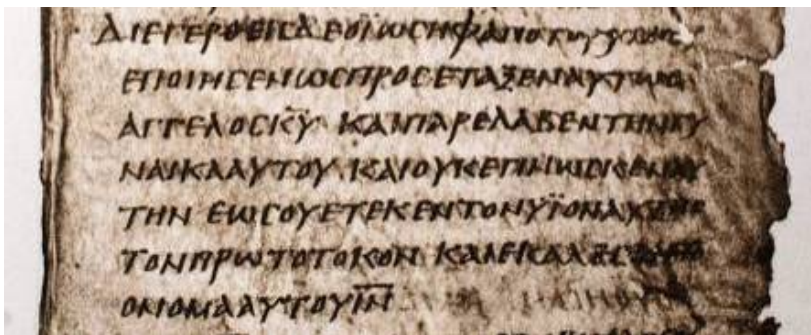 ΔΙΕΓΕΡΘΕΙCΔΕΟΪΩCΗΦΑΠΟΤΟΥΥΠΝΟΥ
ΕΠΟΙΗCΕΝΩCΠΡΟCΕΤΑΞΕΝΑΥΤΩΟ
ΑΓΓΕΛΟCΚ̅Υ̅ ΚΑΙΠΑΡΕΛΑΒΕΝΤΗΝΓΥ
ΝΑΙΚΑΑΥΤΟΥ ΚΑΙΟΥΚΕΓΙΝΩCΚΕΝΑΥ
ΤΗΝ ΕΩCΟΥΕΤΕΚΕΝΤΟΝΥΪΟΝΑΥΤΗC
ΤΟΝΠΡΩΤΟΤΟΚΟΝ ΚΑΙΕΚΑΛΕCΕΝΤΟ
ΟΝΟΜΑΑΥΤΟΥΙ̅Ν̅